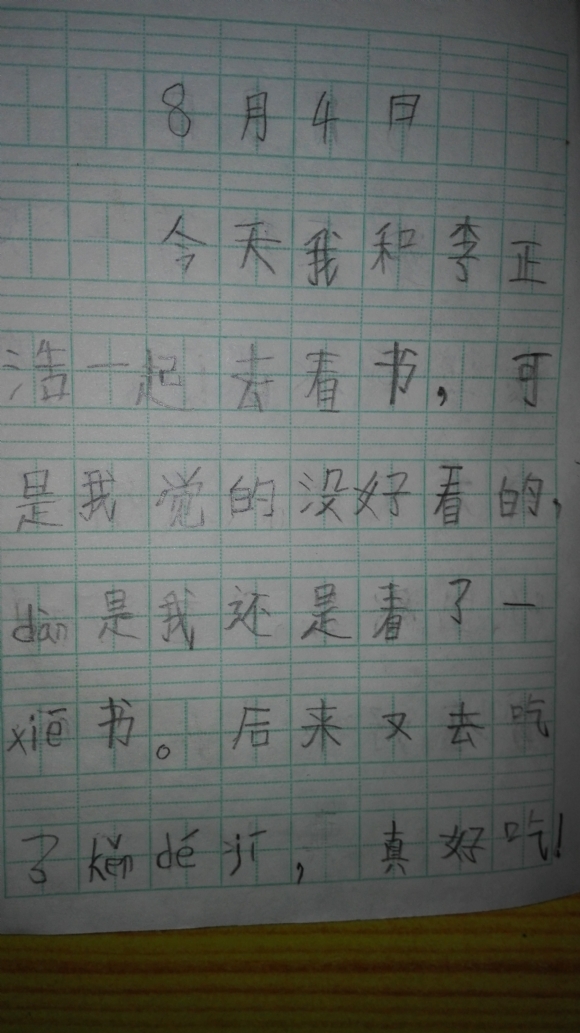 8月4日
今天我和李正
浩一起去看书，可
是我觉的没好看的，
dàn是我还是看了一
xiē书。后来又去吃
了kěn dé jī，真好吃！